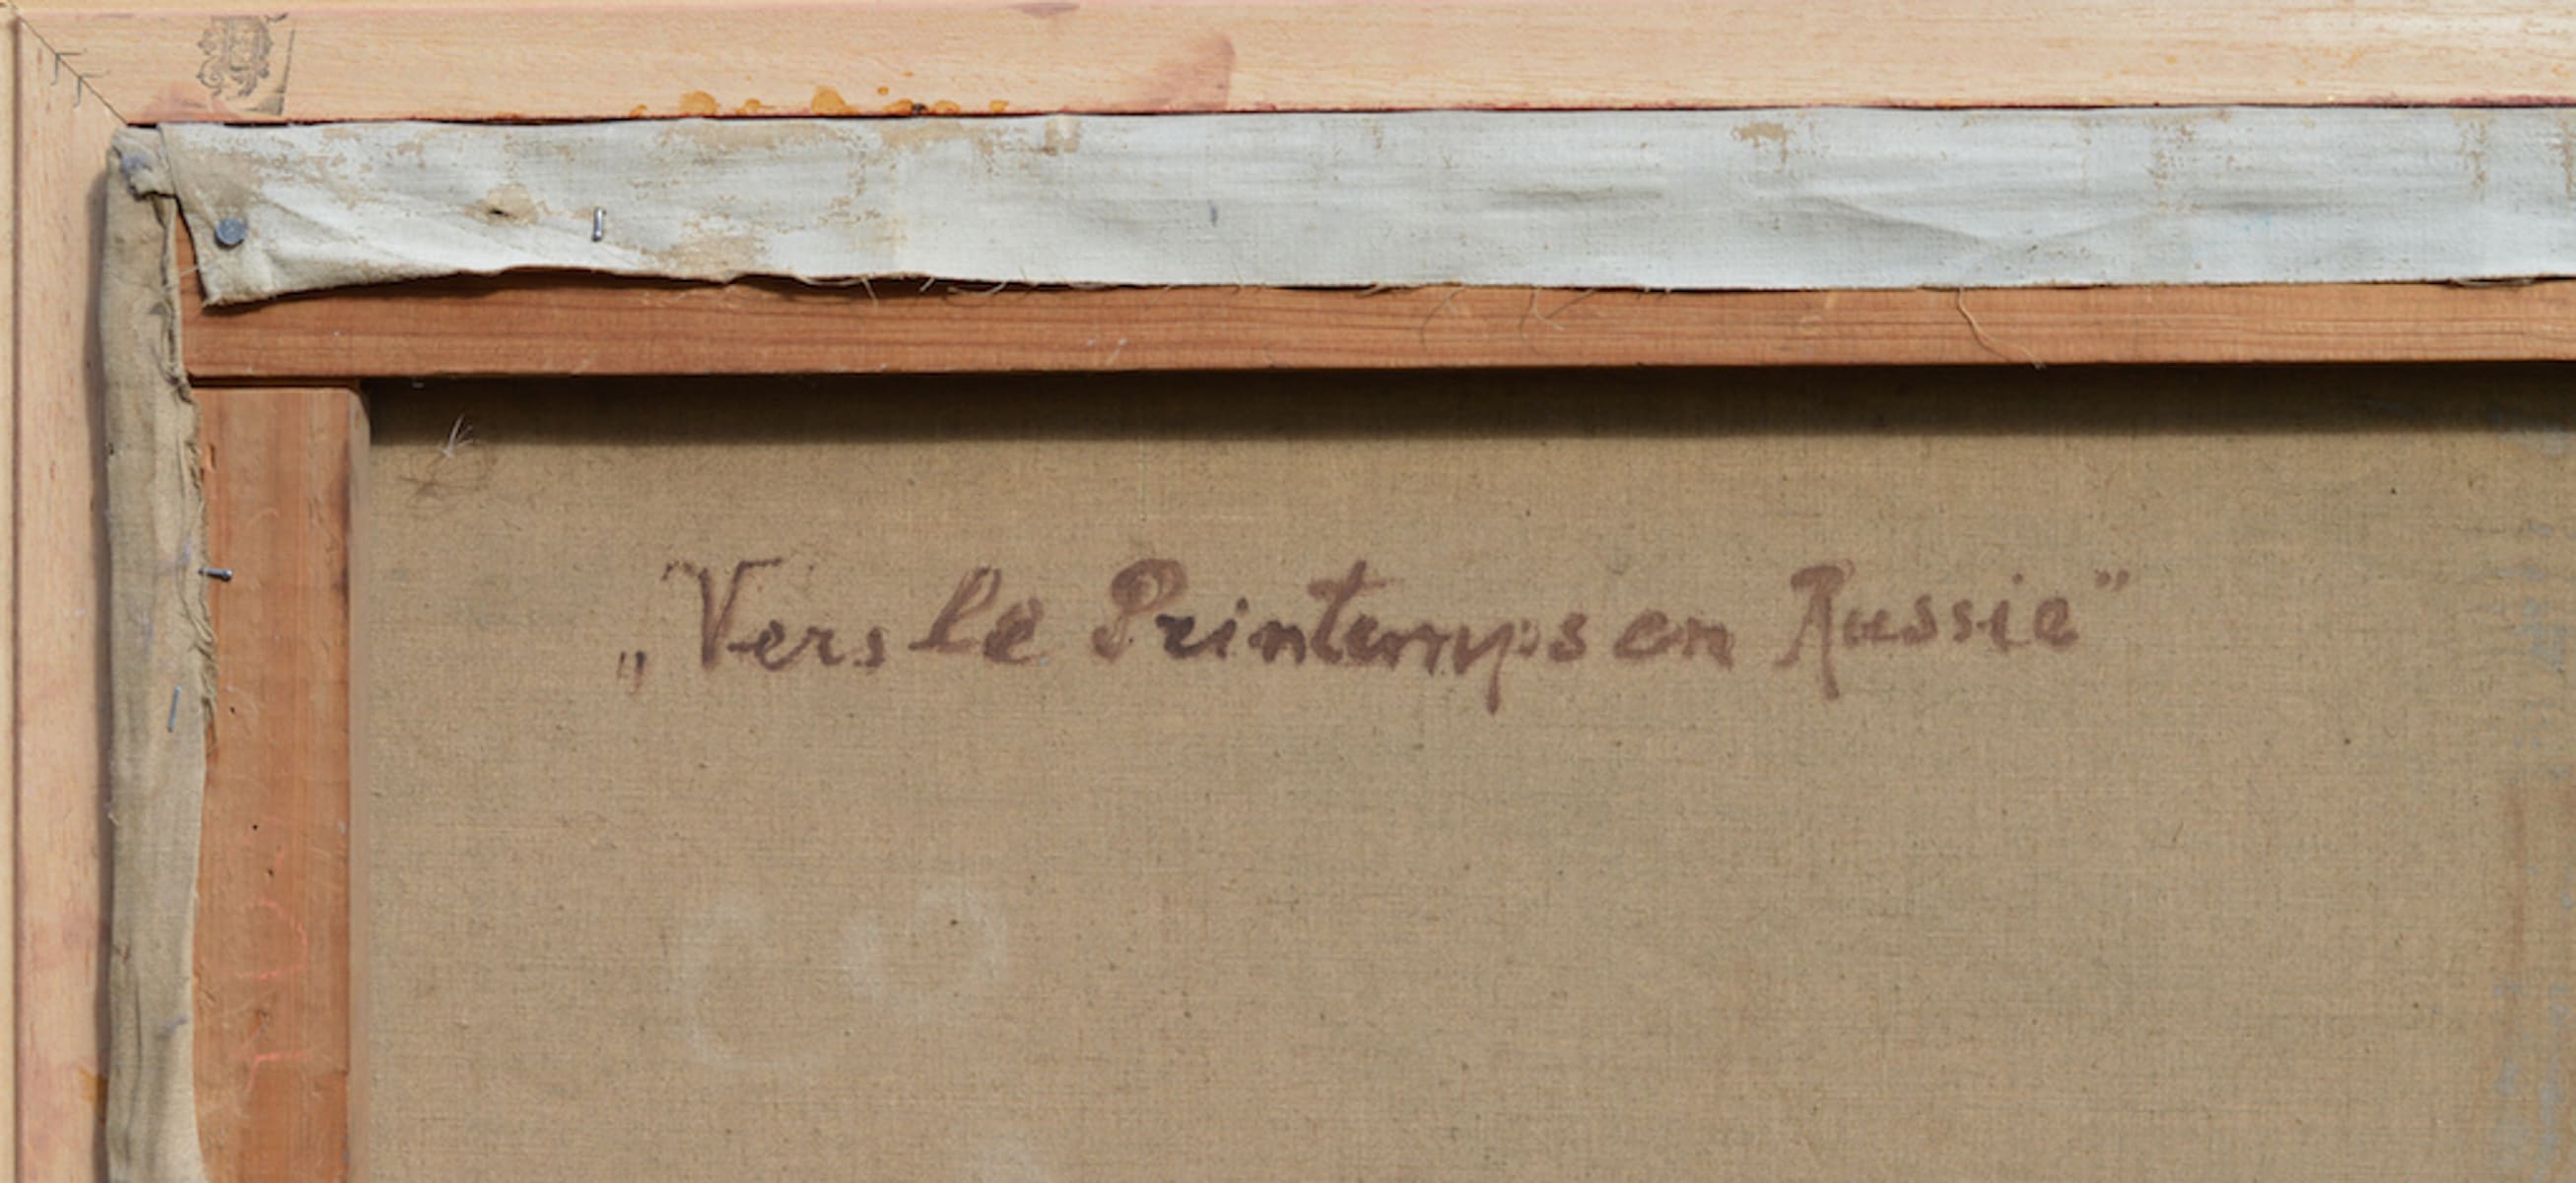 „Vers le Printemps en Russie”